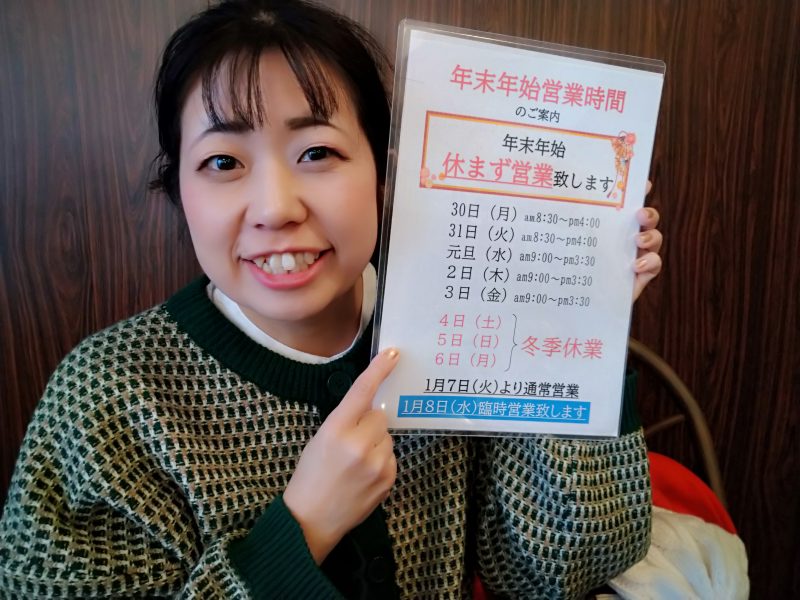 年末年始営業時間
のご案内
年末年始
休まず営業致します
30日（月）am8:30～pm4:00
31日（火）am8:30～pm4:00
元旦（水）am9:00～pm3:30
2日（木）am9:00～pm3:30
3日（金）am9:00～pm3:30
4日（土）
5日（日）
6日（月）
冬季休業
1月7日（火）より通常営業
1月8日（水）臨時営業致します